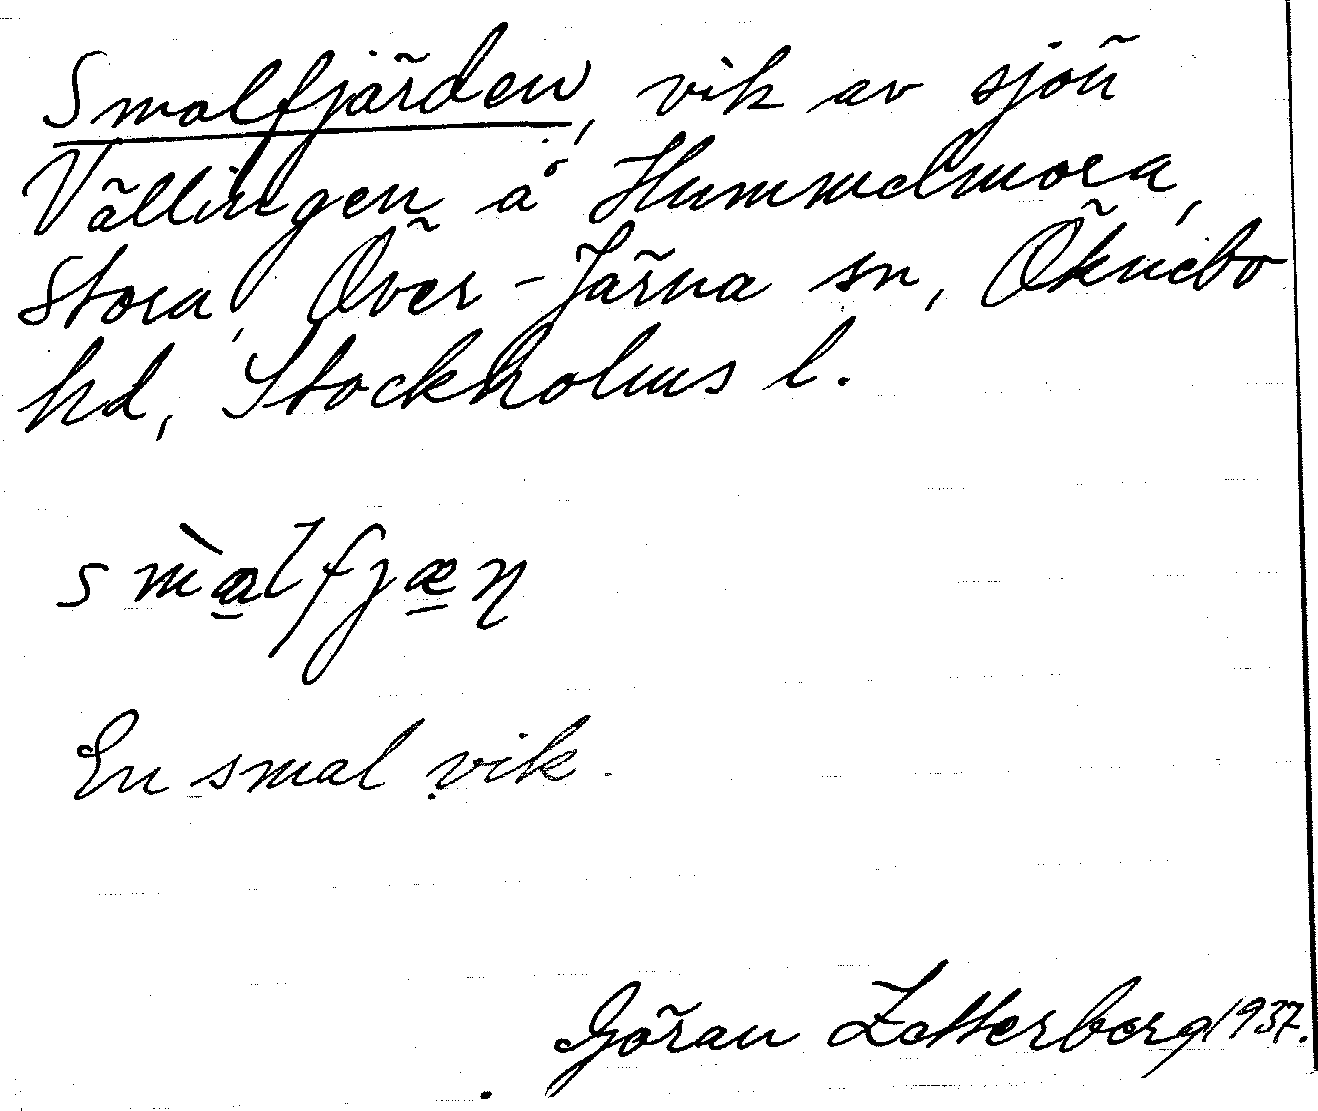 Smalfjärden, vik av sjön
Vällingen å Hummelmora,
Stora, Över-Järna sn, Öknebo
hd, Stockholms l.
smàlfjæn
En smal vik.
Göran Zetterberg 1937.